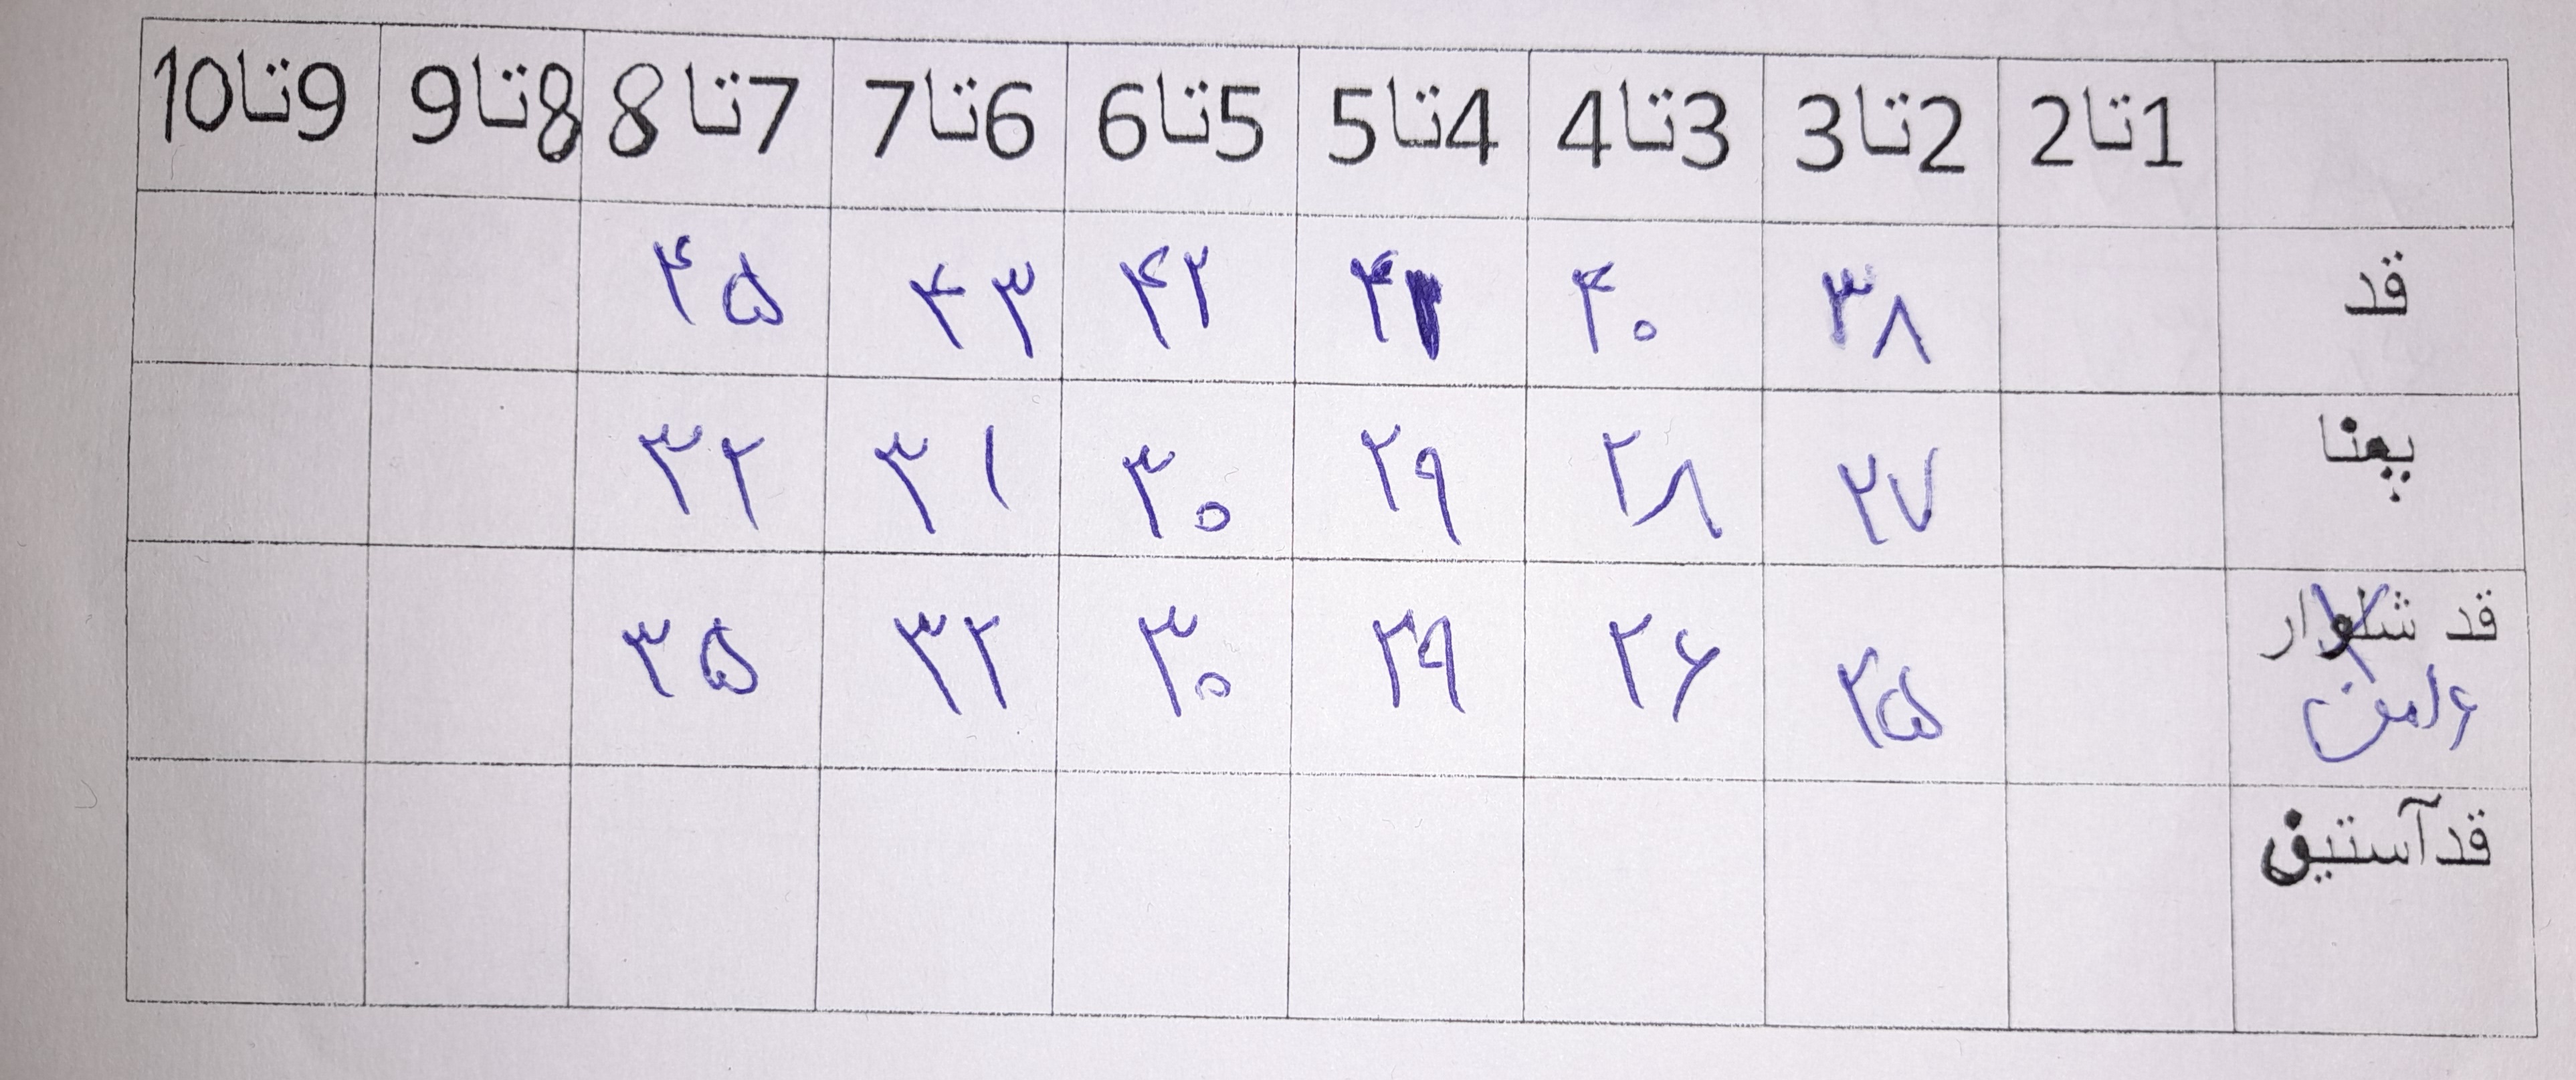 1تا2 2تا3 3تا4 4تا5 5تا6 6تا7 7تا8 8تا9 9تا10
قد ۳۸ ۴۰ ۴۱ ۴۲ ۴۳ ۴۵
پهنا ۲۷ ۲۸ ۲۹ ۳۰ ۳۱ ۳۲
قد شلوار ۲۵ ۲۶ ۲۹ ۳۰ ۳۲ ۳۵
قدآستین